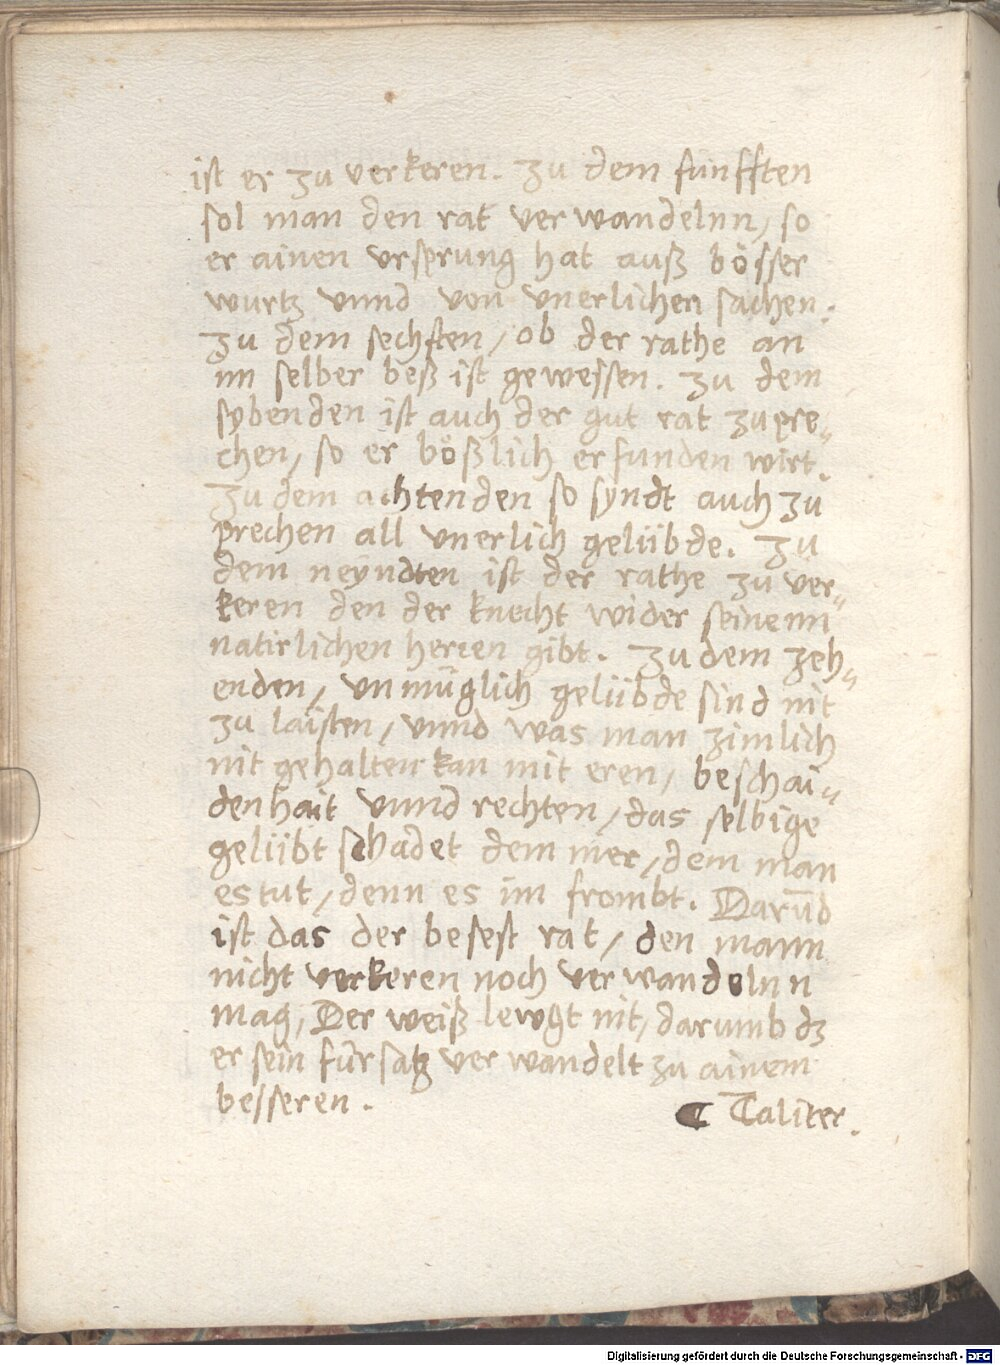 ist er zu verkeren. Zu dem funfften
sol man den rat ver wandelnn, so
er ainen vrsprung hat auß bösser
wurtz vnnd von vnerlichen sachen.
Zu dem sechsten, ob der rathe an
im selber beß ist gewessen. Zu dem
sybenden ist auch der gut rat zupre„
chen, so er bößlich erfunden wirt.
Zu dem achtenden so syndt auch zu
prechen all vnerlich gelübde. Zu
dem neyndten ist der rathe zu ver„
keren den der knecht wider seinenn
natirlichen herren gibt. Zu dem zeh„
enden, vnmüglich gelübde sind nit
zu laisten, vnnd was man zimlich
nit gehalten kan mit eren, beschai„
denhait vnnd rechten, das selbige
gelübt schadet dem mer, dem man
es tut, denn es im frombt. Darūb
ist das der besest rat, den mann
nicht verkeren noch ver wandelnn
mag, Der weiß lewgt nit, darumb dz
er sein fürsatz ver wandelt zu ainem
besseren.
C Taliter.
Digitalisierung gefördert durch die Deutsche Forschungsgemeinschaft - DFG